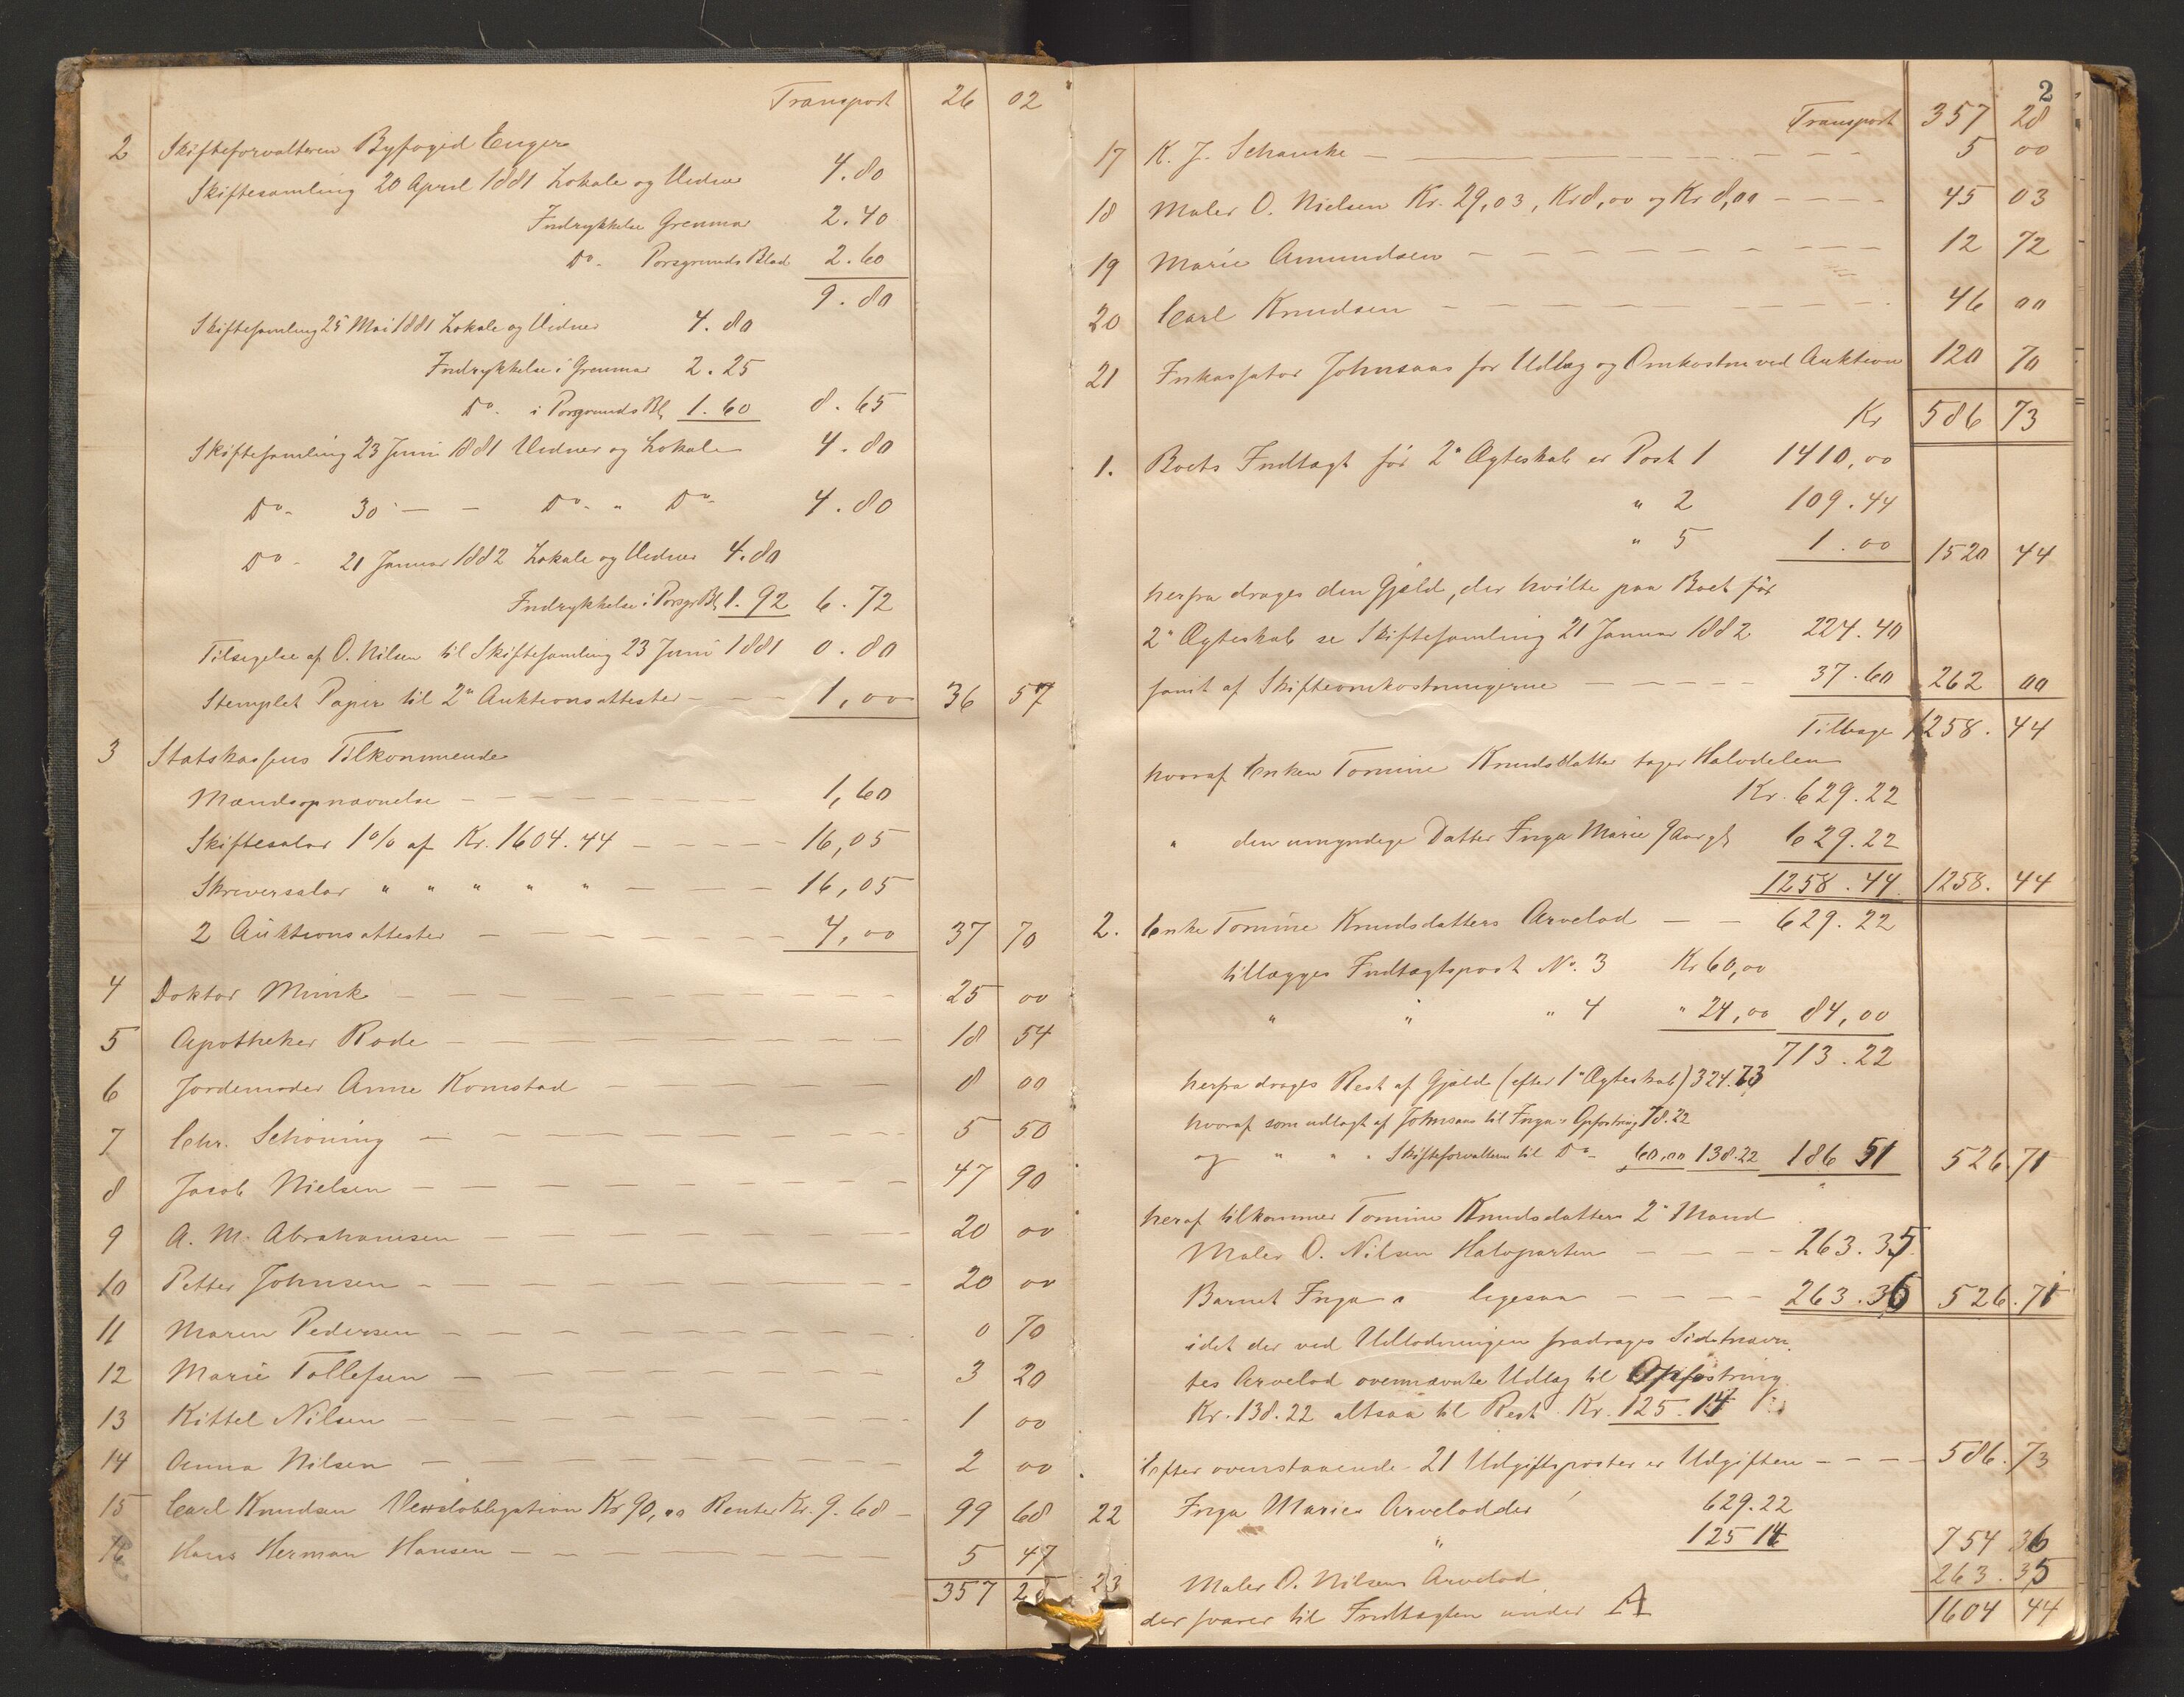 Transport 26 02
2 Skifteforvalteren Byfoged Enger
Skiftesamling 20 April 1881 Lokale og Vidner 4.80
Indrykkelse Grenmar 2.40
Do. Porsgrunds Blad 2.60
9.80
Skiftesamling 25 Mai 1881 Lokale og Vidner 4.80
Indrykkelse i Grenmar 2.25
Do. i Porsgrunds Bl 1.60 8.65
Skiftesamling 23 Juni 1881 Vidner og Lokale 4.80
Do. 30 — — Do. " Do. 4.80
Do. 21 Januar 1882 Lokale og Vidner 4.80
Indrykkelse i Porsgr Bl 1.92 6.72
Tilsigelse af O. Nilsen til Skiftesamling 23 Juni 1881 0.80
Stemplet Papir til 2 Auktionsattester — — 1,00 36 57
3 Statskassens Tilkommende
Mændsopnævnelse — — — 1,60
Skiftesalar 1% af Kr. 1604.44 — — — 16,05
Skriversalar " " " " " — — — 16,05
2 Auktionsattester — — — 4,00 37 70
4 Doktor Munk — — — 25 00
5 Apotheker Rode — — — 18 54
6 Jordemoder Anne Komstad — — — 8 00
7 Chr. Schöning — — — 5 50
8 Jacob Nielsen — — — 47 90
9 A. M. Abrahamsen — — — 20 00
10 Petter Johnsen — — — 20 00
11 Maren Pedersen — — — 0 70
12 Marie Tollefsen — — — 3 20
13 Kittel Nilsen — — — 1 00
14 Anna Nilsen — — — 2 00
15 Carl Knudsen Vexelobligation Kr 90,00 Renter Kr. 9.68 — 99 68
16 Hans Herman Hansen — — — 5 47
357 28
2
Transport 357 28
17 K. J. Schancke — — — 5 00
18 Maler O. Nielsen Kr. 29,03, Kr 8,00 og Kr 8,00 — — — 45 03
19 Marie Amundsen — — — 12 72
20 Carl Knudsen — — — 46 00
21 Inkassator Johnsaas for Udlæg og Omkostn ved Auktion 120 70
Kr 586 73
1. Boets Indtægt før 2. Ægteskab er Post 1 1410,00
" 2 109.44
" 5 1.00 1520 44
herfra drages den Gjæld, der hvilte paa Boet før
2. Ægteskab se Skiftesamling 21 Januar 1882 224.40
samt af Skifteomkostningerne — — — 37.60 262 00
Tilbage 1258.44
hvoraf Enken Tomine Knudsdatter tager Halvdelen
Kr. 629.22
" den umyndige Datter Inga Marie 629.22
1258.44 1258.44
2. Enke Tomine Knudsdatters Arvelod — — 629.22
tillægges Indtægtspost No. 3 Kr 60,00
" " " 4 " 24,00 84,00
713.22
herfra drages Rest af Gjæld (efter 1. Ægteskab) 324.73
hvoraf som udlagt af Johnsaas til Ingas Opfostring 78.22
og " " " Skifteforvalteren til Do. 60,00 138.22 186 51 526.71
heraf tilkommer Tomine Knudsdatters 2. Mand
Maler O. Nilsen Halvparten — — — 263.35
Barnet Inga ligesaa — — — 263.36 526.71
idet der ved Udlodningen fradrages Sidstnævn-
tes Arvelod ovennævnte Udlæg til Opfostring
Kr. 138.22 altsaa til Rest Kr. 125.14
Efter ovenstaaende 21 Udgiftsposter er Udgiften — — — 586.73
22 Inga Maries Arvelodder 629.22
" 125 14 754 36
23 Maler O. Nilsens Arvelod 263.35
der svarer til Indtægten under A 1604 44